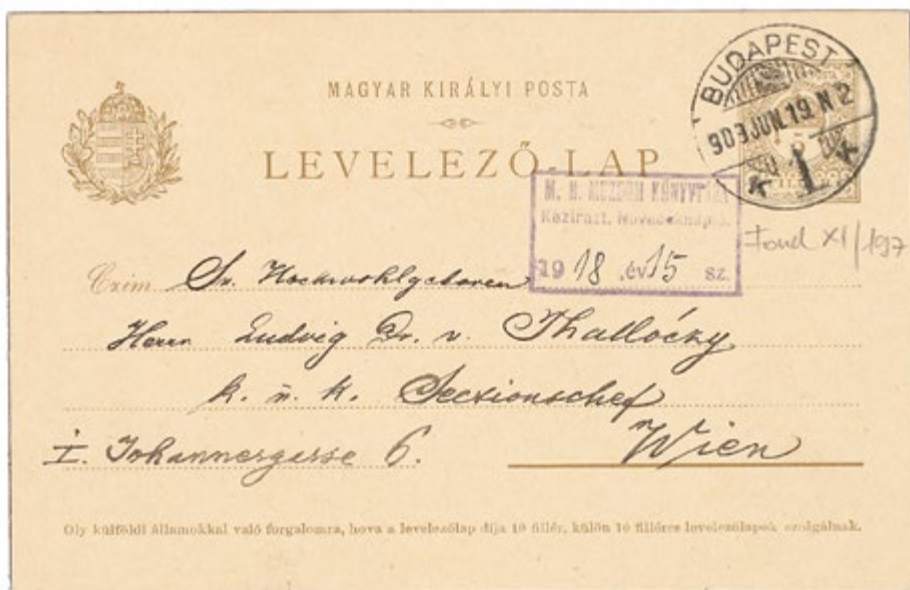 MAGYAR KIRÁLYI POSTA
LEVELEZŐ-LAP
BUDAPEST
903 JUN. 19. N 2
K 1 K
M. N. MUZEUM KÖNYVTÁRA
Kéziratt. Növedéknapló.
1918 .év 15 sz.
Fond XI/197
Czim Sr. Hochwohlgeboren
Herrn Ludwig Dr. v. Thallóczy
k. u. k. Seczionschef
Wien
I. Johannesgasse 6.
Oly külföldi államokkal való forgalomra, hova a levelezőlap díja 10 fillér, külön 10 filléres levelezőlapok szolgálnak.